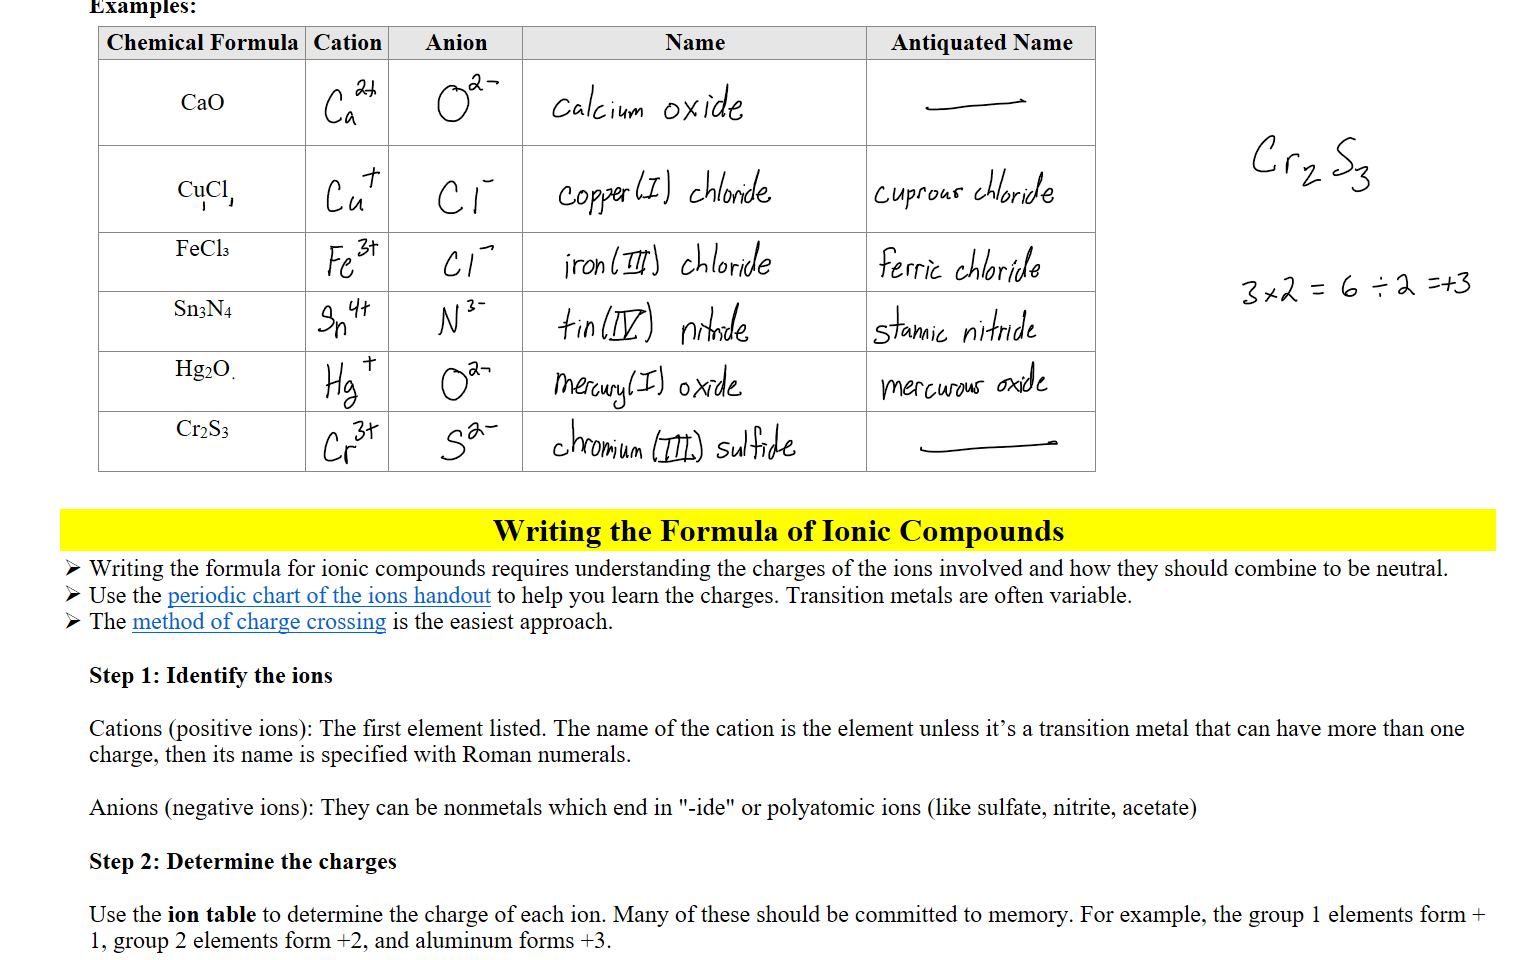 Examples:
Chemical Formula Cation Anion Name Antiquated Name
CaO Ca²⁺ O²⁻ calcium oxide —
CuCl, Cu⁺ Cl⁻ copper(I) chloride cuprous chloride
FeCl₃ Fe³⁺ Cl⁻ iron(III) chloride ferric chloride
Sn₃N₄ Sn⁴⁺ N³⁻ tin(IV) nitride stannic nitride
Hg₂O. Hg⁺ O²⁻ mercury(I) oxide mercurous oxide
Cr₂S₃ Cr³⁺ S²⁻ chromium (III) sulfide —
Cr₂S₃
3×2 = 6 ÷ 2 = +3
Writing the Formula of Ionic Compounds
➢ Writing the formula for ionic compounds requires understanding the charges of the ions involved and how they should combine to be neutral.
➢ Use the periodic chart of the ions handout to help you learn the charges. Transition metals are often variable.
➢ The method of charge crossing is the easiest approach.
Step 1: Identify the ions
Cations (positive ions): The first element listed. The name of the cation is the element unless it’s a transition metal that can have more than one
charge, then its name is specified with Roman numerals.
Anions (negative ions): They can be nonmetals which end in "-ide" or polyatomic ions (like sulfate, nitrite, acetate)
Step 2: Determine the charges
Use the ion table to determine the charge of each ion. Many of these should be committed to memory. For example, the group 1 elements form +
1, group 2 elements form +2, and aluminum forms +3.